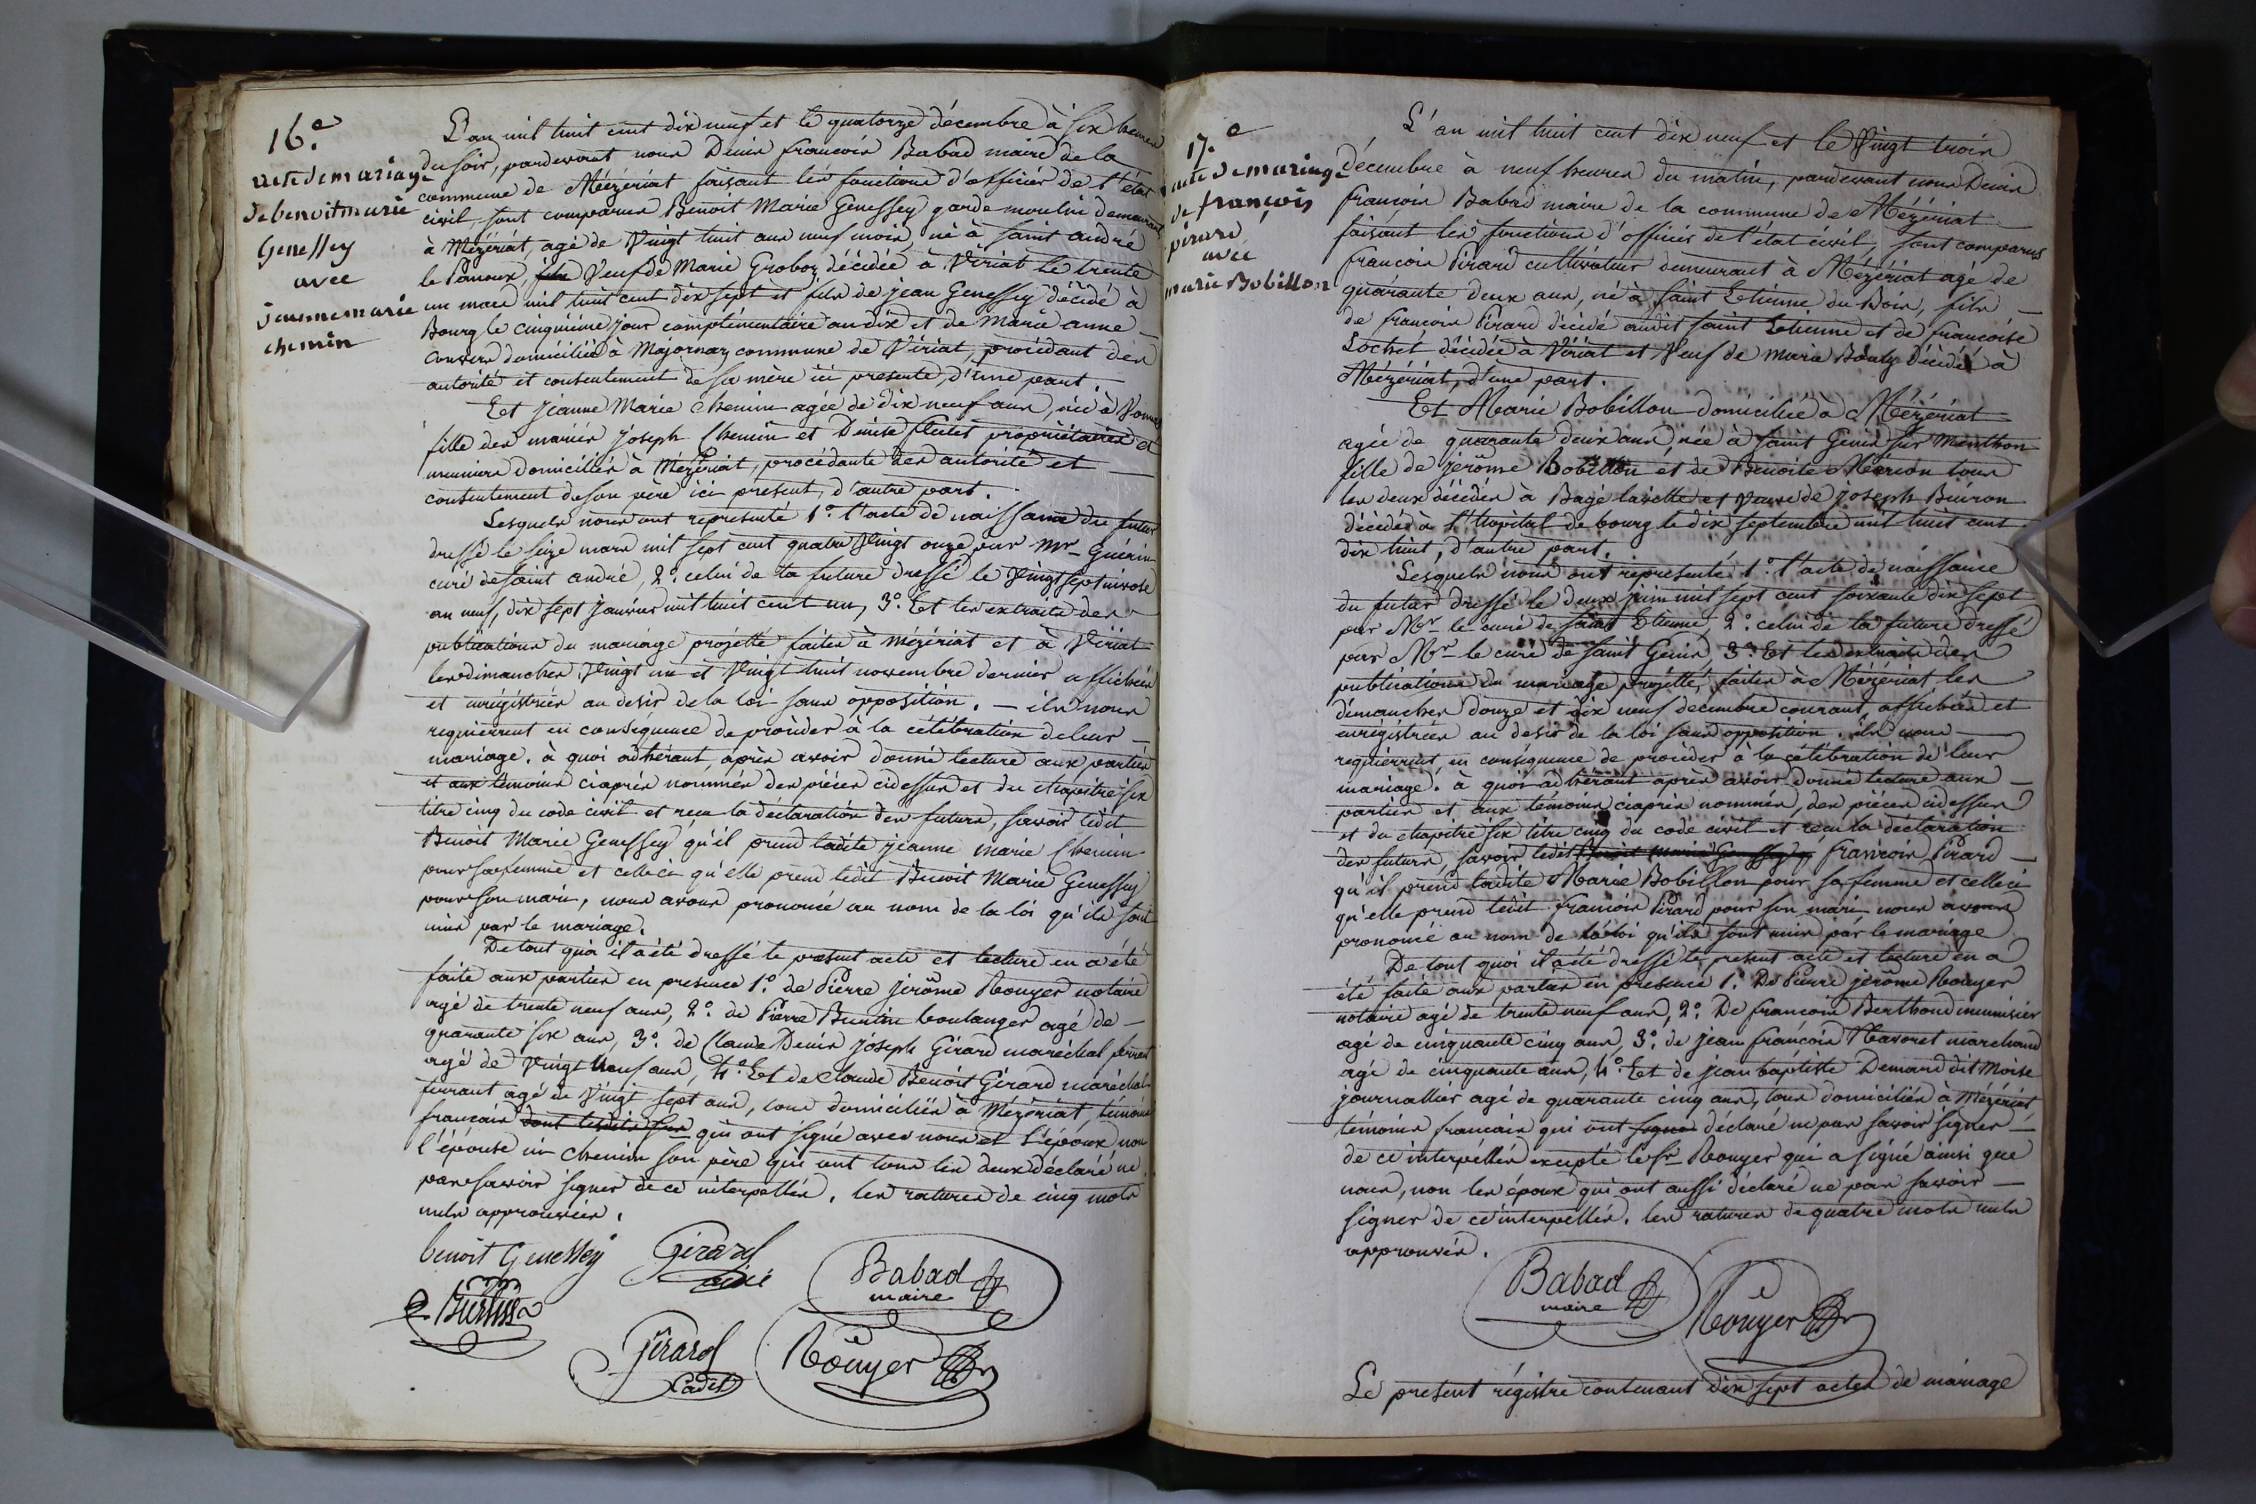 16.e
acte de mariage
de benoit marie
Genessey
avec
jeanne marie
chemin
L'an mil huit cent dix neuf et le quatorze décembre à six heures
du soir, pardevant nous Denis françois Babad maire de la
commune de Mézériat faisant les fonctions d'officier de l'état
civil, sont comparus Benoit Marie Genessey garde moulin demeurant
à Mézériat, agé de Vingt huit ans neuf mois, né à saint andré
le Panoux, fils Veuf de Marie Groboz décédée à Viriat le trente
un mars mil huit cent dix sept et fils de jean Genessey décédé à
Bourg le cinquième jour complémentaire an dix et de Marie anne
Convers domiciliée à Majornay commune de Viriat, procédant des
autorité et consentement de sa mère ici presente, d'une part.
Et Jeanne Marie Chemin agée de dix neuf ans, née à Vonnas
fille des mariés joseph Chemin et Denise propriétaires et
meuniers domiciliés à Mézériat, procédante des autorité et
consentement de son père ici present, d'autre part.
Lesquels nous ont representé 1.º l'acte de naissance du futur
dressé le seize mars mil sept cent quatre Vingt onze par Mr Guérin
curé de saint andré, 2.º celui de la future dressé le Vingt sept nivose
an neuf, dix sept janvier mil huit cent un, 3.º Et les extraits des
publications du mariage projetté faites à Mézériat et à Viriat
les dimanches Vingt un et Vingt huit novembre dernier affichées
et enrégistrées au desir de la loi sans opposition. — ils nous
requierrent en conséquence de procéder à la célébration de leur
mariage. à quoi adhérant, après avoir donné lecture aux parties
et aux témoins ciaprès nommés des pièces cidessus et du chapitre six
titre cinq du code civil et reçu la déclaration des futurs, savoir ledit
Benoit Marie Genessey qu'il prend ladite jeanne marie Chemin
pour sa femme et celleci qu'elle prend ledit Benoit Marie Genessey
pour son mari, nous avons prononcé au nom de la loi qu'ils sont
unis par le mariage.
De tout quoi il a été dressé le present acte et lecture en a été
faite aux parties en presence 1.º de Pierre jerôme Rouyer notaire
agé de trente neuf ans, 2.º de Pierre Burtin boulanger agé de
quarante six ans, 3.º de Claude Denis joseph Girard maréchal ferrant
agé de Vingt neuf ans, 4.º Et de Claude Benoit Girard maréchal
ferrant agé de Vingt sept ans, tous domiciliés à Mézériat, témoins
francais dont lesdits qui ont signé avec nous et l'époux non
l'épouse ni Chemin son père qui ont tous les deux déclaré ne
pas savoir signer de ce interpellés. les ratures de cinq mots
nuls approuvées.
benoit Genessey
Girard
ainé
Babad
maire
Burtin
Girard
Cadet
Rouyer
17.e
acte de mariage
de françois
pirard
avec
marie Bobillon
L'an mil huit cent dix neuf et le Vingt trois
décembre à neuf heures du matin, pardevant nous Denis
francois Babad maire de la commune de Mézériat
faisant les fonctions d'officier de l'état civil, sont comparus
francois Pirard cultivateur demeurant à Mézériat agé de
quarante deux ans, né à saint Etienne du Bois, fils
de francois Pirard décédé audit saint Etienne et de francoise
Lochet décédée à Viriat et Veuf de Marie Bouty décédée à
Mézériat, d'une part.
Et Marie Bobillon domiciliée à Mézériat
agée de quarante deux ans, née à saint Genis sur Menthon
fille de jerôme Bobillon et de Benoite Merion tous
les deux décédés à Bagé laville et Veuve de joseph Buiron
décédé à l'hopital de bourg le dix septembre mil huit cent
dix huit, d'autre part.
Lesquels nous ont representé 1.º l'acte de naissance
du futur dressé le deux juin mil sept cent soixante dix sept
par Mr le curé de saint Etienne, 2.º celui de la future dressé
par Mr le curé de saint Genis, 3.º Et les extraits des
publications du mariage projetté, faites à Mézériat les
dimanches douze et dix neuf décembre courant, affichées et
enrégistrées au desir de la loi sans opposition. ils nous
requierrent, en conséquence de procéder à la célébration de leur
mariage. à quoi adhérant après avoir donné lecture aux
parties et aux témoins ciaprès nommés, des pièces cidessus
et du chapitre six titre cinq du code civil et reçu la déclaration
des futurs, savoir ledit Benoit Marie Genessey q françois Pirard
qu'il prend ladite Marie Bobillon pour sa femme et celleci
qu'elle prend ledit francois Pirard pour son mari nous avons
prononcé au nom de la loi qu'ils sont unis par le mariage
De tout quoi il a été dressé le present acte et lecture en a
été faite aux parties en presence 1.º De Pierre jerôme Rouyer
notaire agé de trente neuf ans, 2.º De francois Berthoud menuisier
agé de cinquante cinq ans, 3.º de jean francois Navoret marchand
agé de cinquante ans, 4.º Et de jean baptiste Demard dit Moise
journallier agé de quarante cinq ans, tous domiciliés à Mézériat
témoins francais qui ont signé déclaré ne pas savoir signer
de ce interpellés excepté le Sr Rouyer qui a signé ainsi que
nous, non les époux qui ont aussi déclaré ne pas savoir
signer de ce interpellés. les ratures de quatre mots nuls
approuvés.
Babad
maire
Rouyer
Le present régistre contenant dix sept actes de mariage